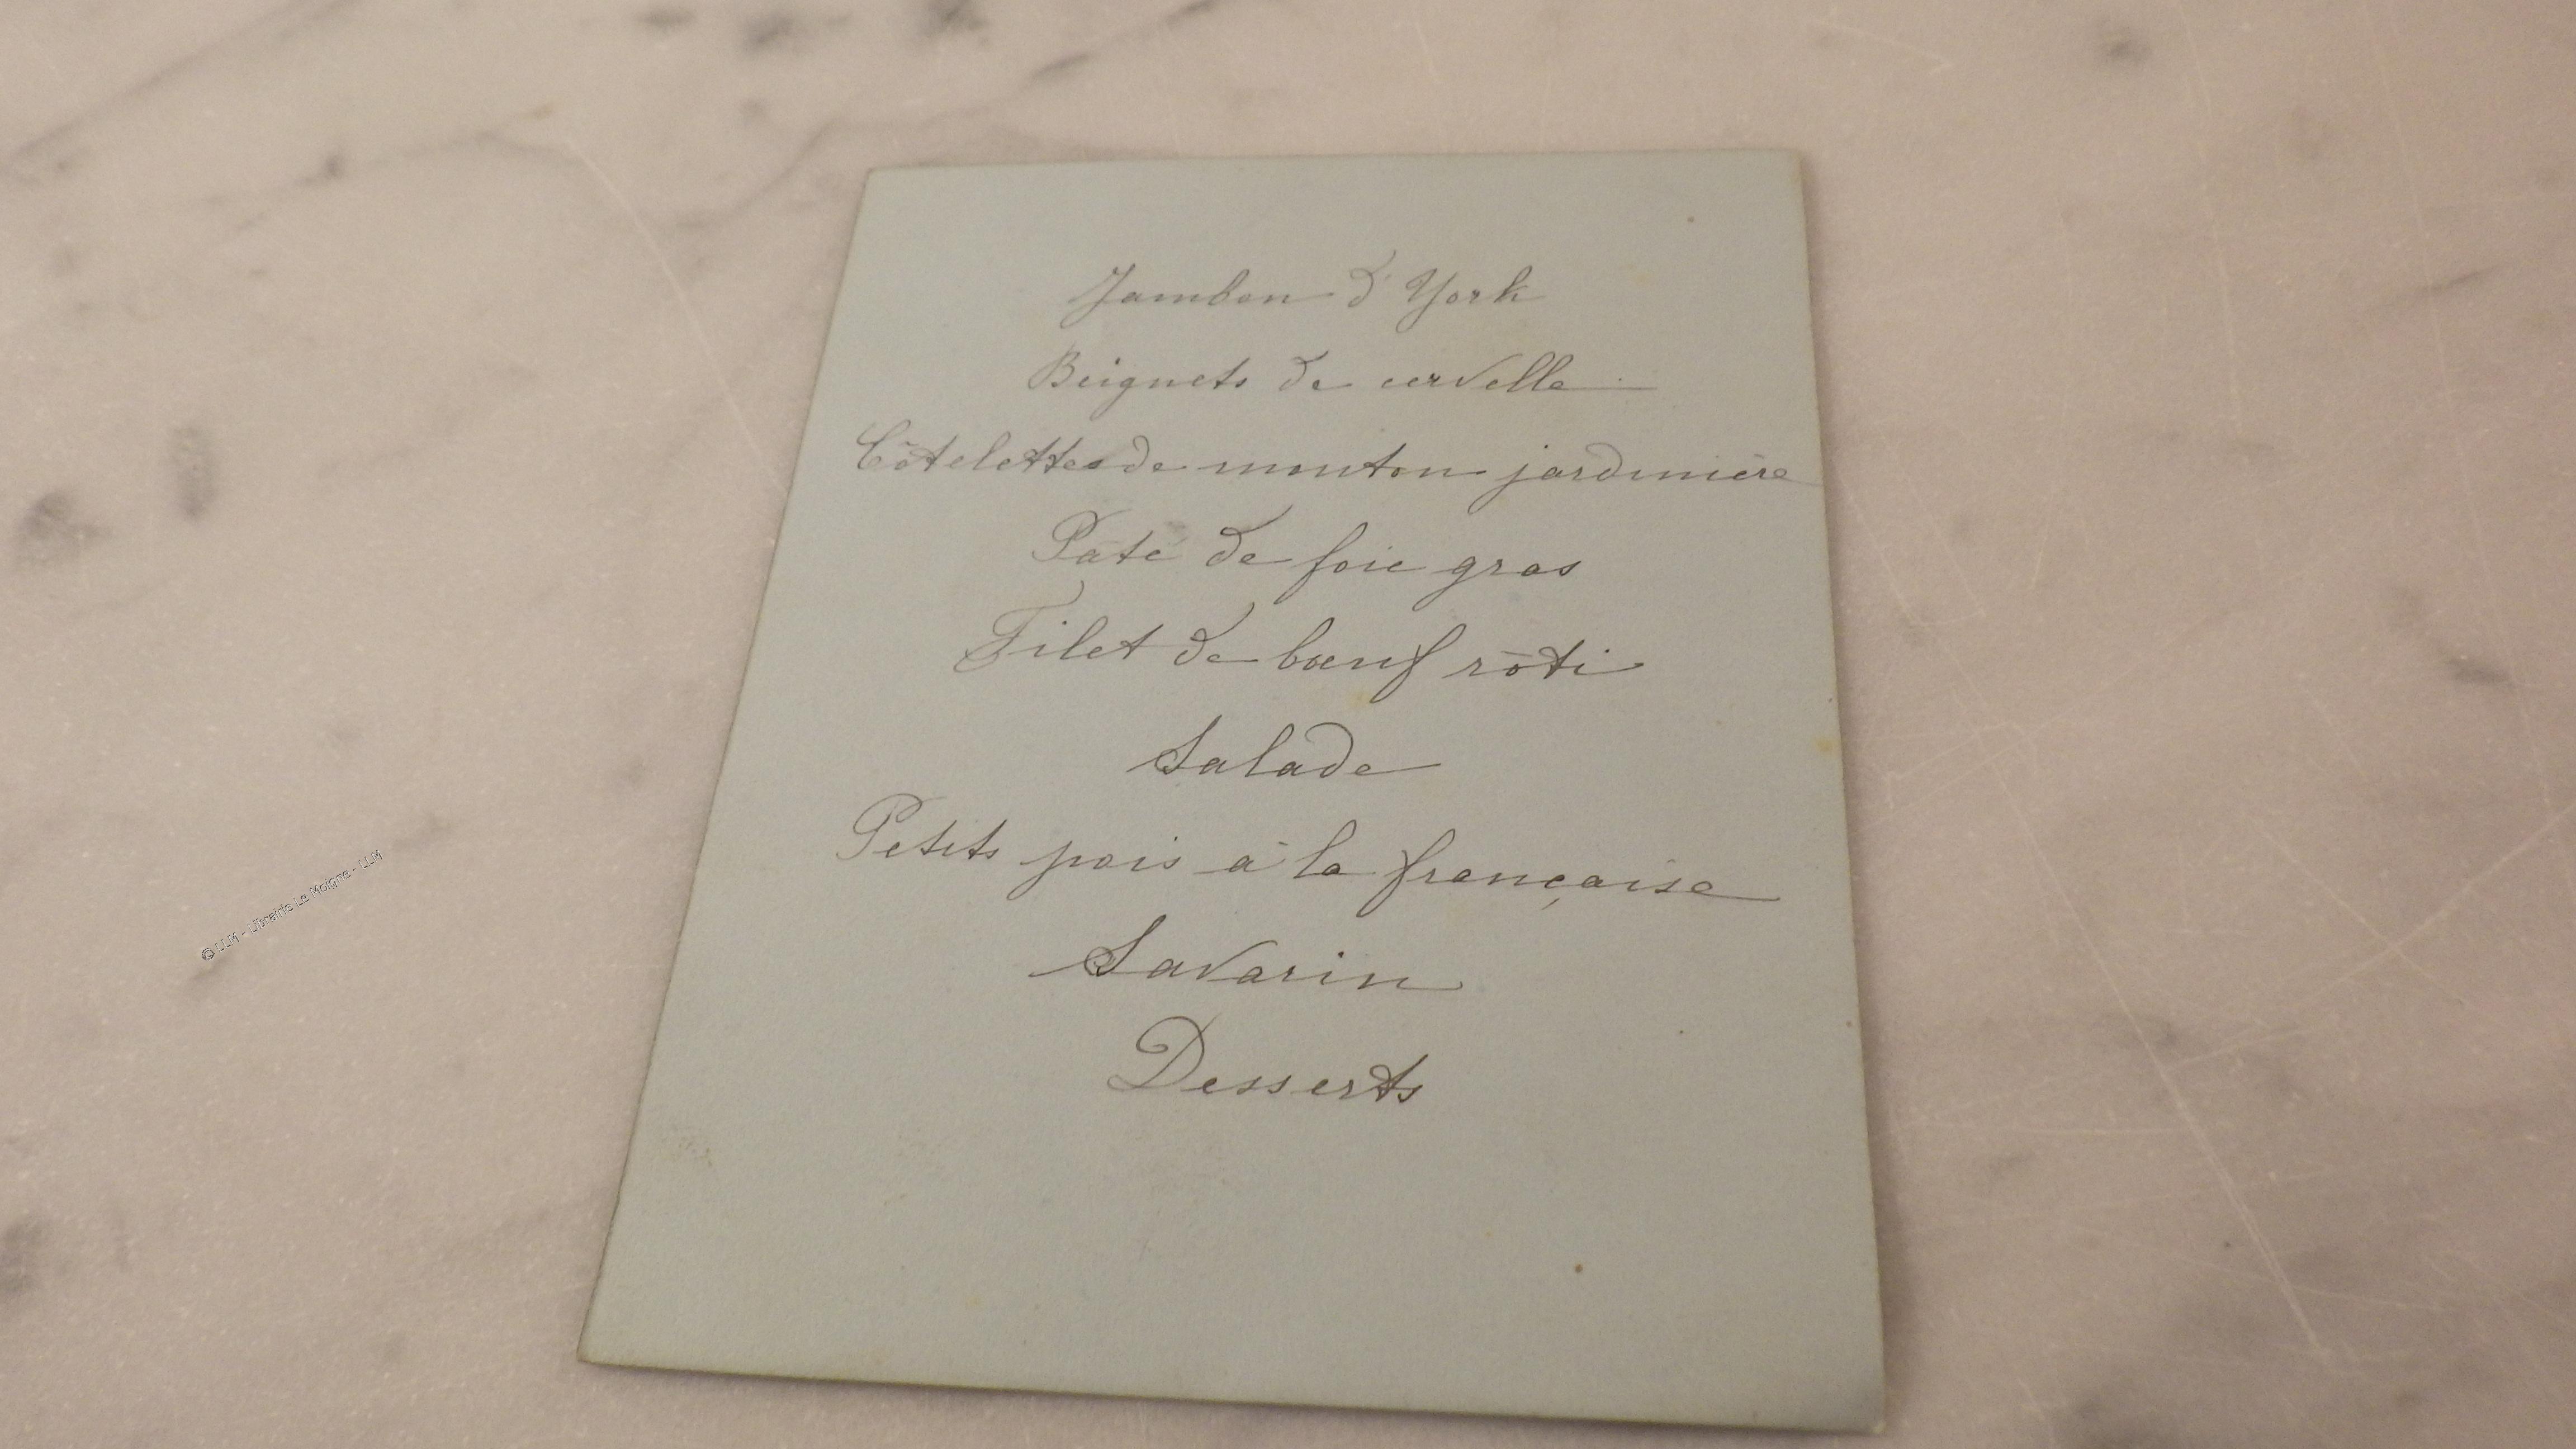 Jambon d'York
Beignets de cervelle
Côtelettes de mouton jardinière
Pâté de foie gras
Filet de bœuf rôti
Salade
Petits pois à la française
Savarin
Desserts
© LLM - Librairie Le Moigne - LLM